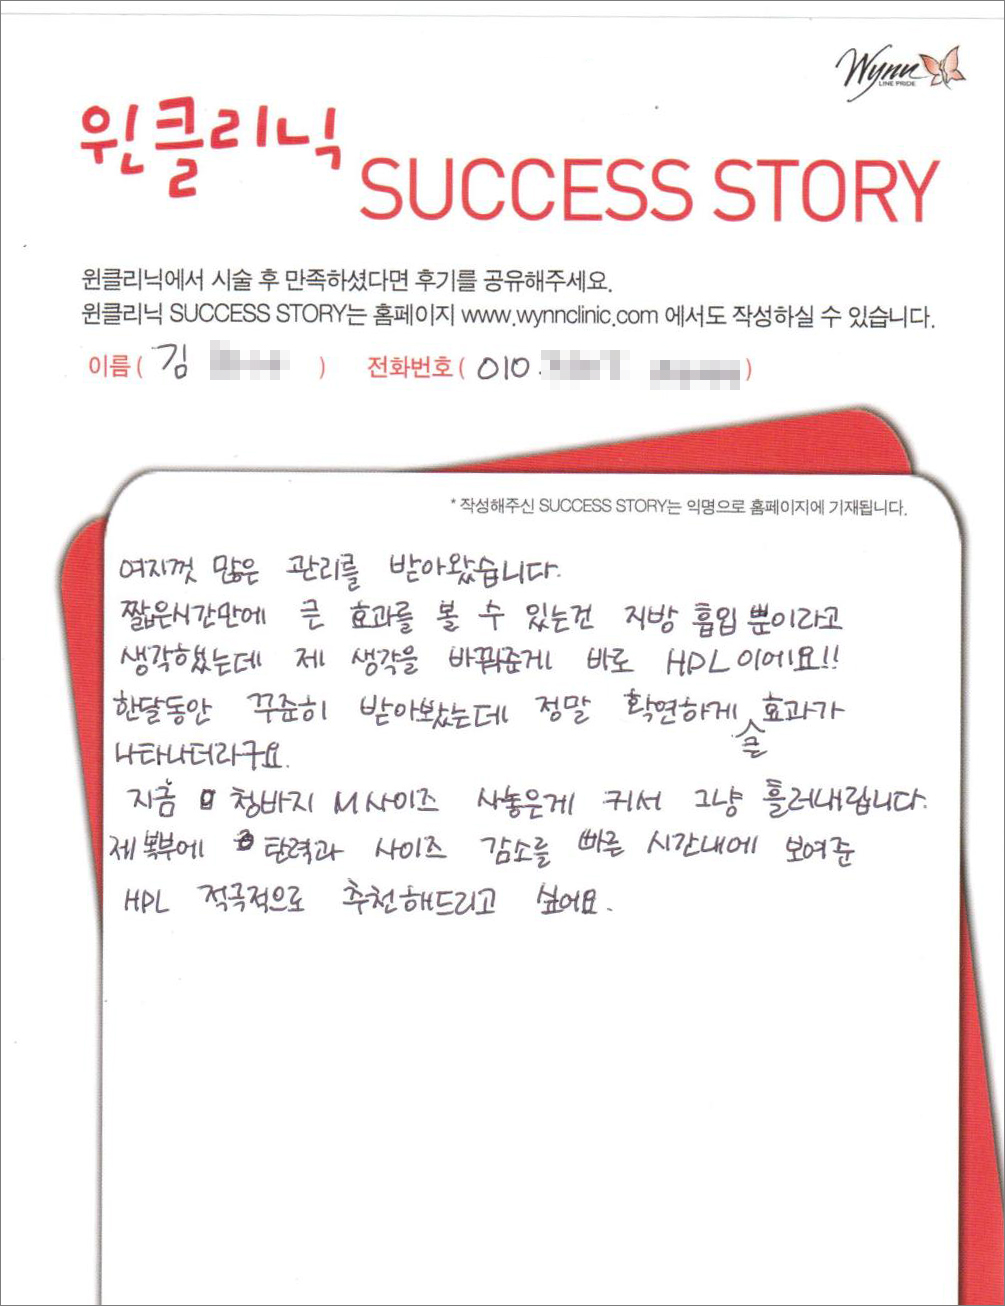 Wynn
LINE PRIDE
윈클리닉
SUCCESS STORY
윈클리닉에서 시술 후 만족하셨다면 후기를 공유해주세요.
윈클리닉 SUCCESS STORY는 홈페이지 www.wynnclinic.com 에서도 작성하실 수 있습니다.
이름 ( 김 ) 전화번호 ( 010 )
* 작성해주신 SUCCESS STORY는 익명으로 홈페이지에 기재됩니다.
여지껏 많은 관리를 받아왔습니다.
짧은시간만에 큰 효과를 볼 수 있는건 지방 흡입 뿐이라고
생각했는데 제 생각을 바꿔준게 바로 HPL이에요!!
한달동안 꾸준히 받아봤는데 정말 확연하게 큰 효과가
나타나더라구요.
지금 청바지 M사이즈 사놓은게 커서 그냥 흘러내립니다.
제 복부에 탄력과 사이즈 감소를 빠른 시간내에 보여준
HPL 적극적으로 추천해드리고 싶어요.